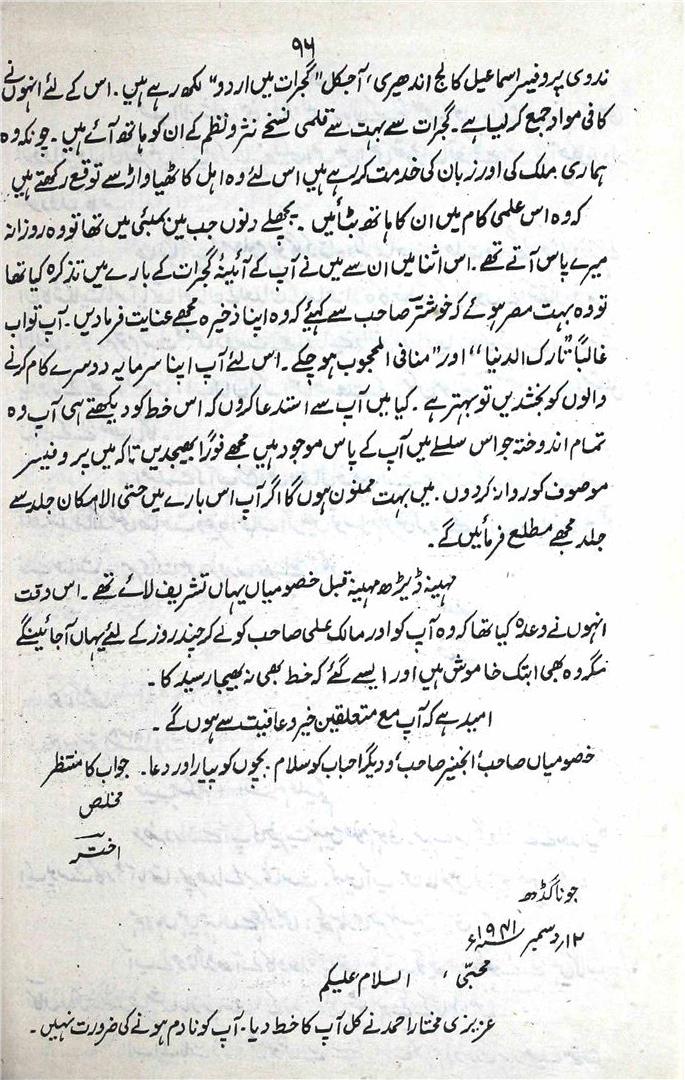 ۹۶
ندوی پروفیسر اسماعیل کالج اندھیری، آجکل "گجرات میں اردو" لکھ رہے ہیں۔ اس کے لئے انہوں نے
کافی مواد جمع کر لیا ہے۔ گجرات سے بہت سے قلمی نسخے نثر و نظم کے ان کو ہاتھ آئے ہیں۔ چونکہ وہ
ہماری ملک کی اور زبان کی خدمت کر رہے ہیں اس لئے وہ اہل کاٹھیاواڑ سے توقع رکھتے ہیں
کہ وہ اس علمی کام میں ان کا ہاتھ بٹائیں۔ پچھلے دنوں جب میں بمبئی میں تھا تو وہ روزانہ
میرے پاس آتے تھے۔ اس اثنا میں ان سے میں نے آپ کے آئینۂ گجرات کے بارے میں تذکرہ کیا تھا
تو وہ بہت مصر ہوئے کہ خوشتر صاحب سے کہیئے کہ وہ اپنا ذخیرہ مجھے عنایت فرمادیں۔ آپ تو اب
غالباً "تارک الدنیا" اور "منافی المحجوب ہو چکے۔ اس لئے آپ اپنا سرمایہ دوسرے کام کرنے
والوں کو بخشدیں تو بہتر ہے۔ کیا میں آپ سے استدعا کروں کہ اس خط کو دیکھتے ہی آپ وہ
تمام اندوختہ جو اس سلسلے میں آپ کے پاس موجود ہیں مجھے فوراً بھیجدیں تاکہ میں پروفیسر
موصوف کو روانہ کردوں۔ میں بہت ممنون ہوں گا اگر آپ اس بارے میں حتی الامکان جلد سے
جلد مجھے مطلع فرمائیں گے۔
مہینہ ڈیڑھ مہینہ قبل خصومیاں یہاں تشریف لائے تھے۔ اس وقت
انہوں نے وعدہ کیا تھا کہ وہ آپ کو اور مالک علی صاحب کو لے کر چند روز کے لئے یہاں آجائینگے
مگر وہ بھی ابتک خاموش ہیں اور ایسے گئے کہ خط بھی نہ بھیجا رسید کا۔
امید ہے کہ آپ مع متعلقین خیر و عافیت سے ہوں گے۔
خصومیاں صاحب، انجنیر صاحب، و دیگر احباب کو سلام۔ بچوں کو پیار اور دعا۔ جواب کا منتظر
مخلص
اختر
جوناگڈھ
۱۲ر دسمبر ۱۹۴۱ء
محبّی، السلام علیکم
عزیزی مختار احمد نے کل آپ کا خط دیا۔ آپ کو نادم ہونے کی ضرورت نہیں۔